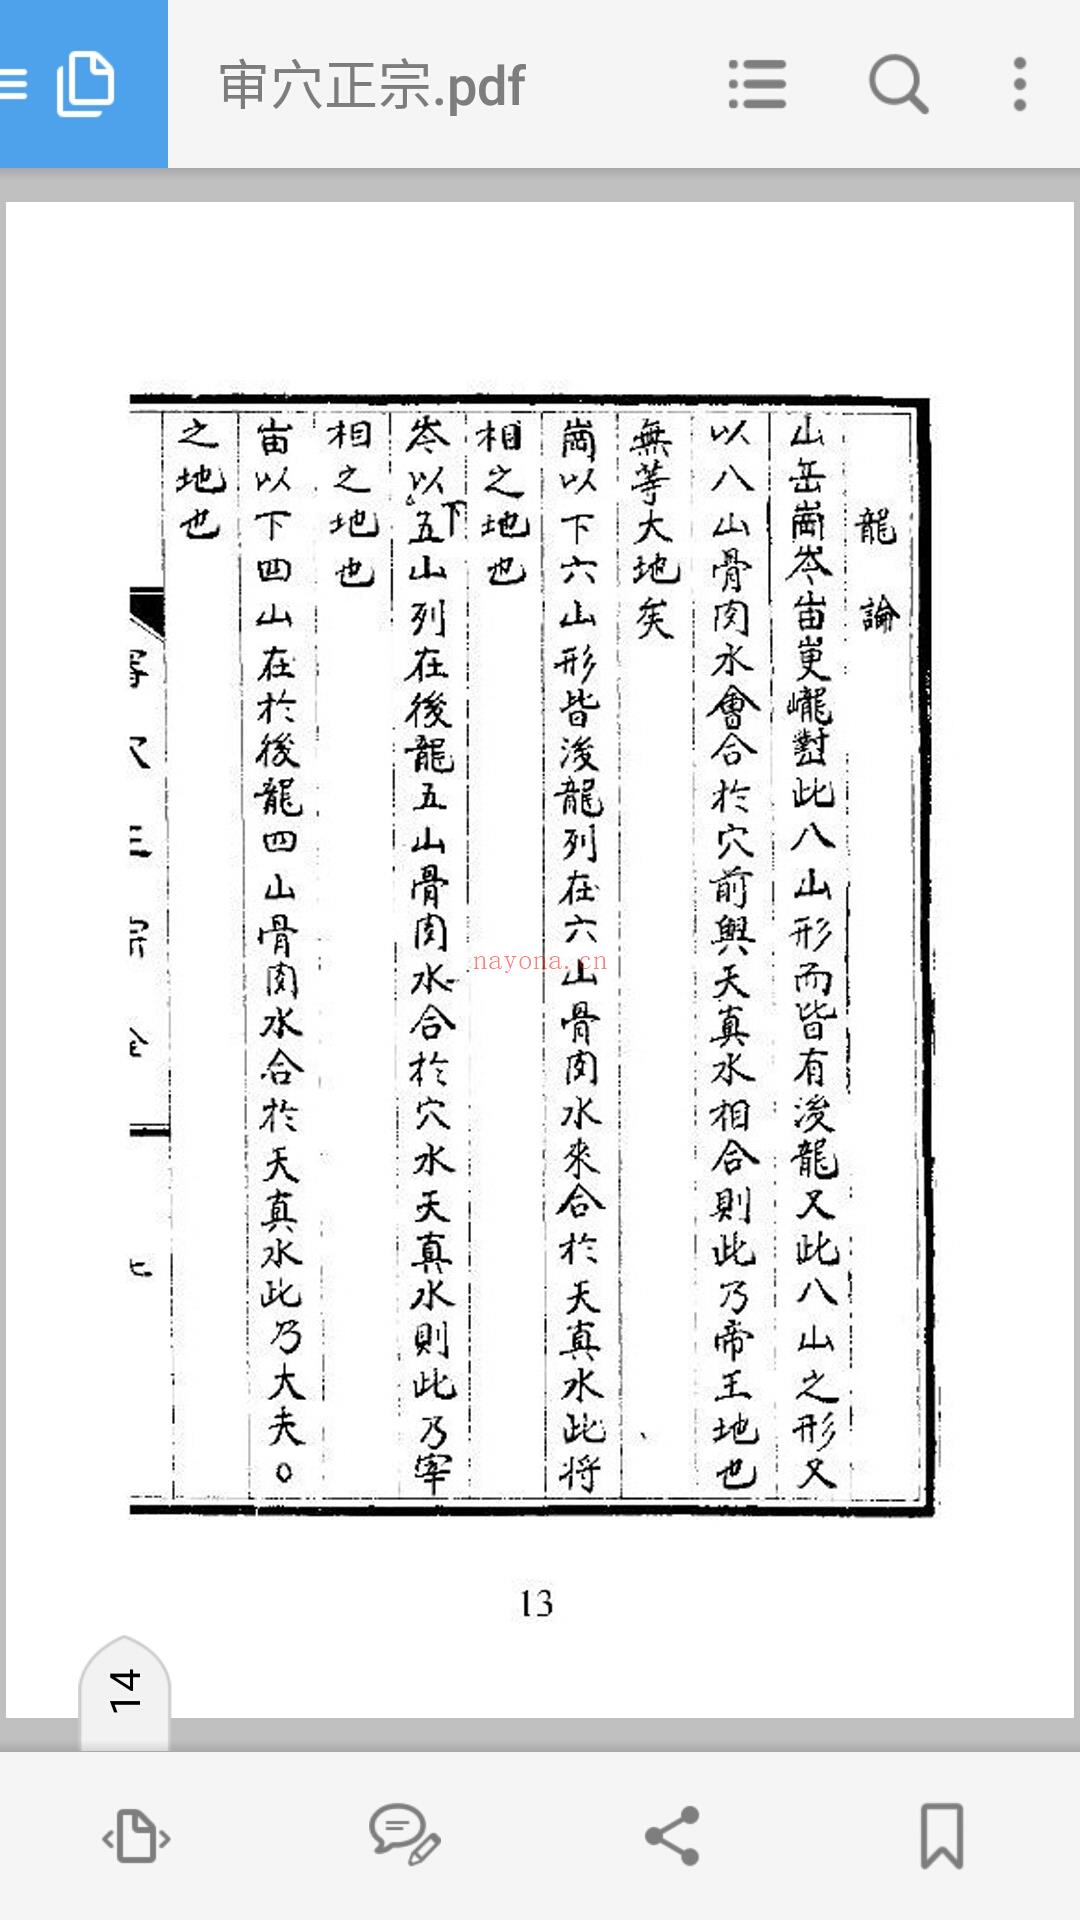 审穴正宗.pdf
龍論
山岳崗岑峀峕巃對此八山形而皆有後龍又此八山之形又
以八山骨肉水會合於穴前與天真水相合則此乃帝王地也
無等大地矣
崗以下六山形皆後龍列在六山骨肉水來合於天真水此将
相之地也
岑以下五山列在後龍五山骨肉水合於穴水天真水則此乃宰
相之地也
峀以下四山在於後龍四山骨肉水合於天真水此乃大夫〇
之地也
nayona.cn
13
14